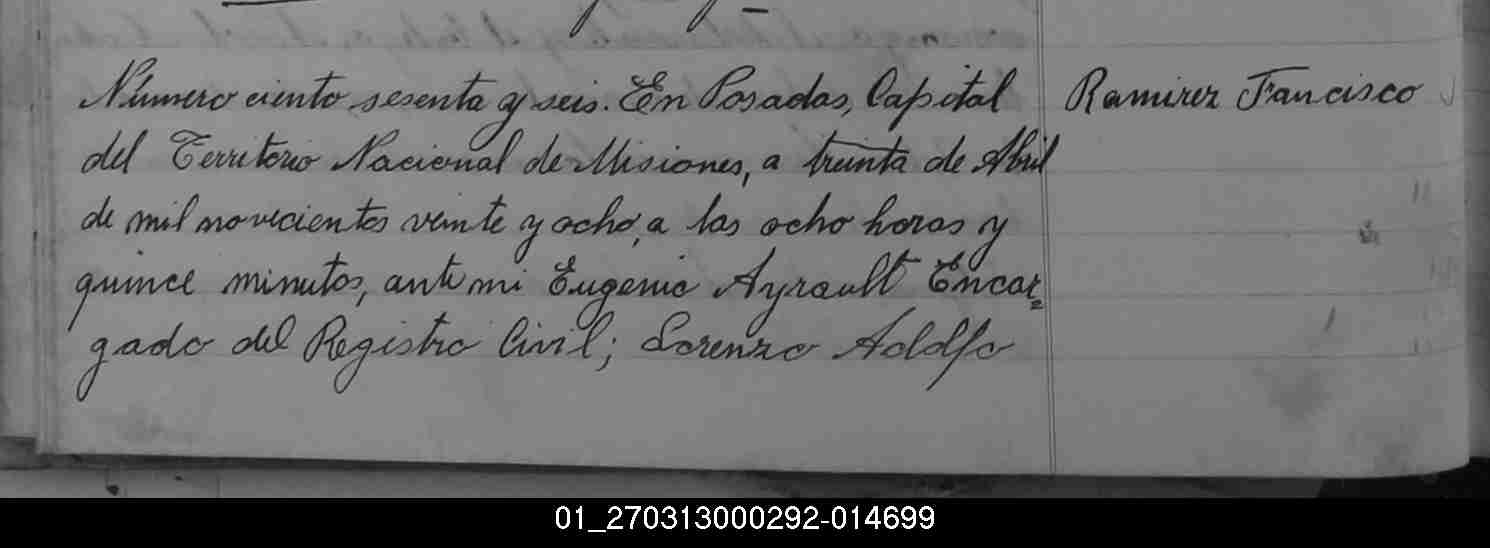 Número ciento sesenta y seis. En Posadas, Capital
Ramirez Francisco
del Territorio Nacional de Misiones, a treinta de Abril
de mil novecientos veinte y ocho, a las ocho horas y
quince minutos, ante mi Eugenio Ayrault Encar=
gado del Registro Civil; Lorenzo Adolfo
01_270313000292-014699